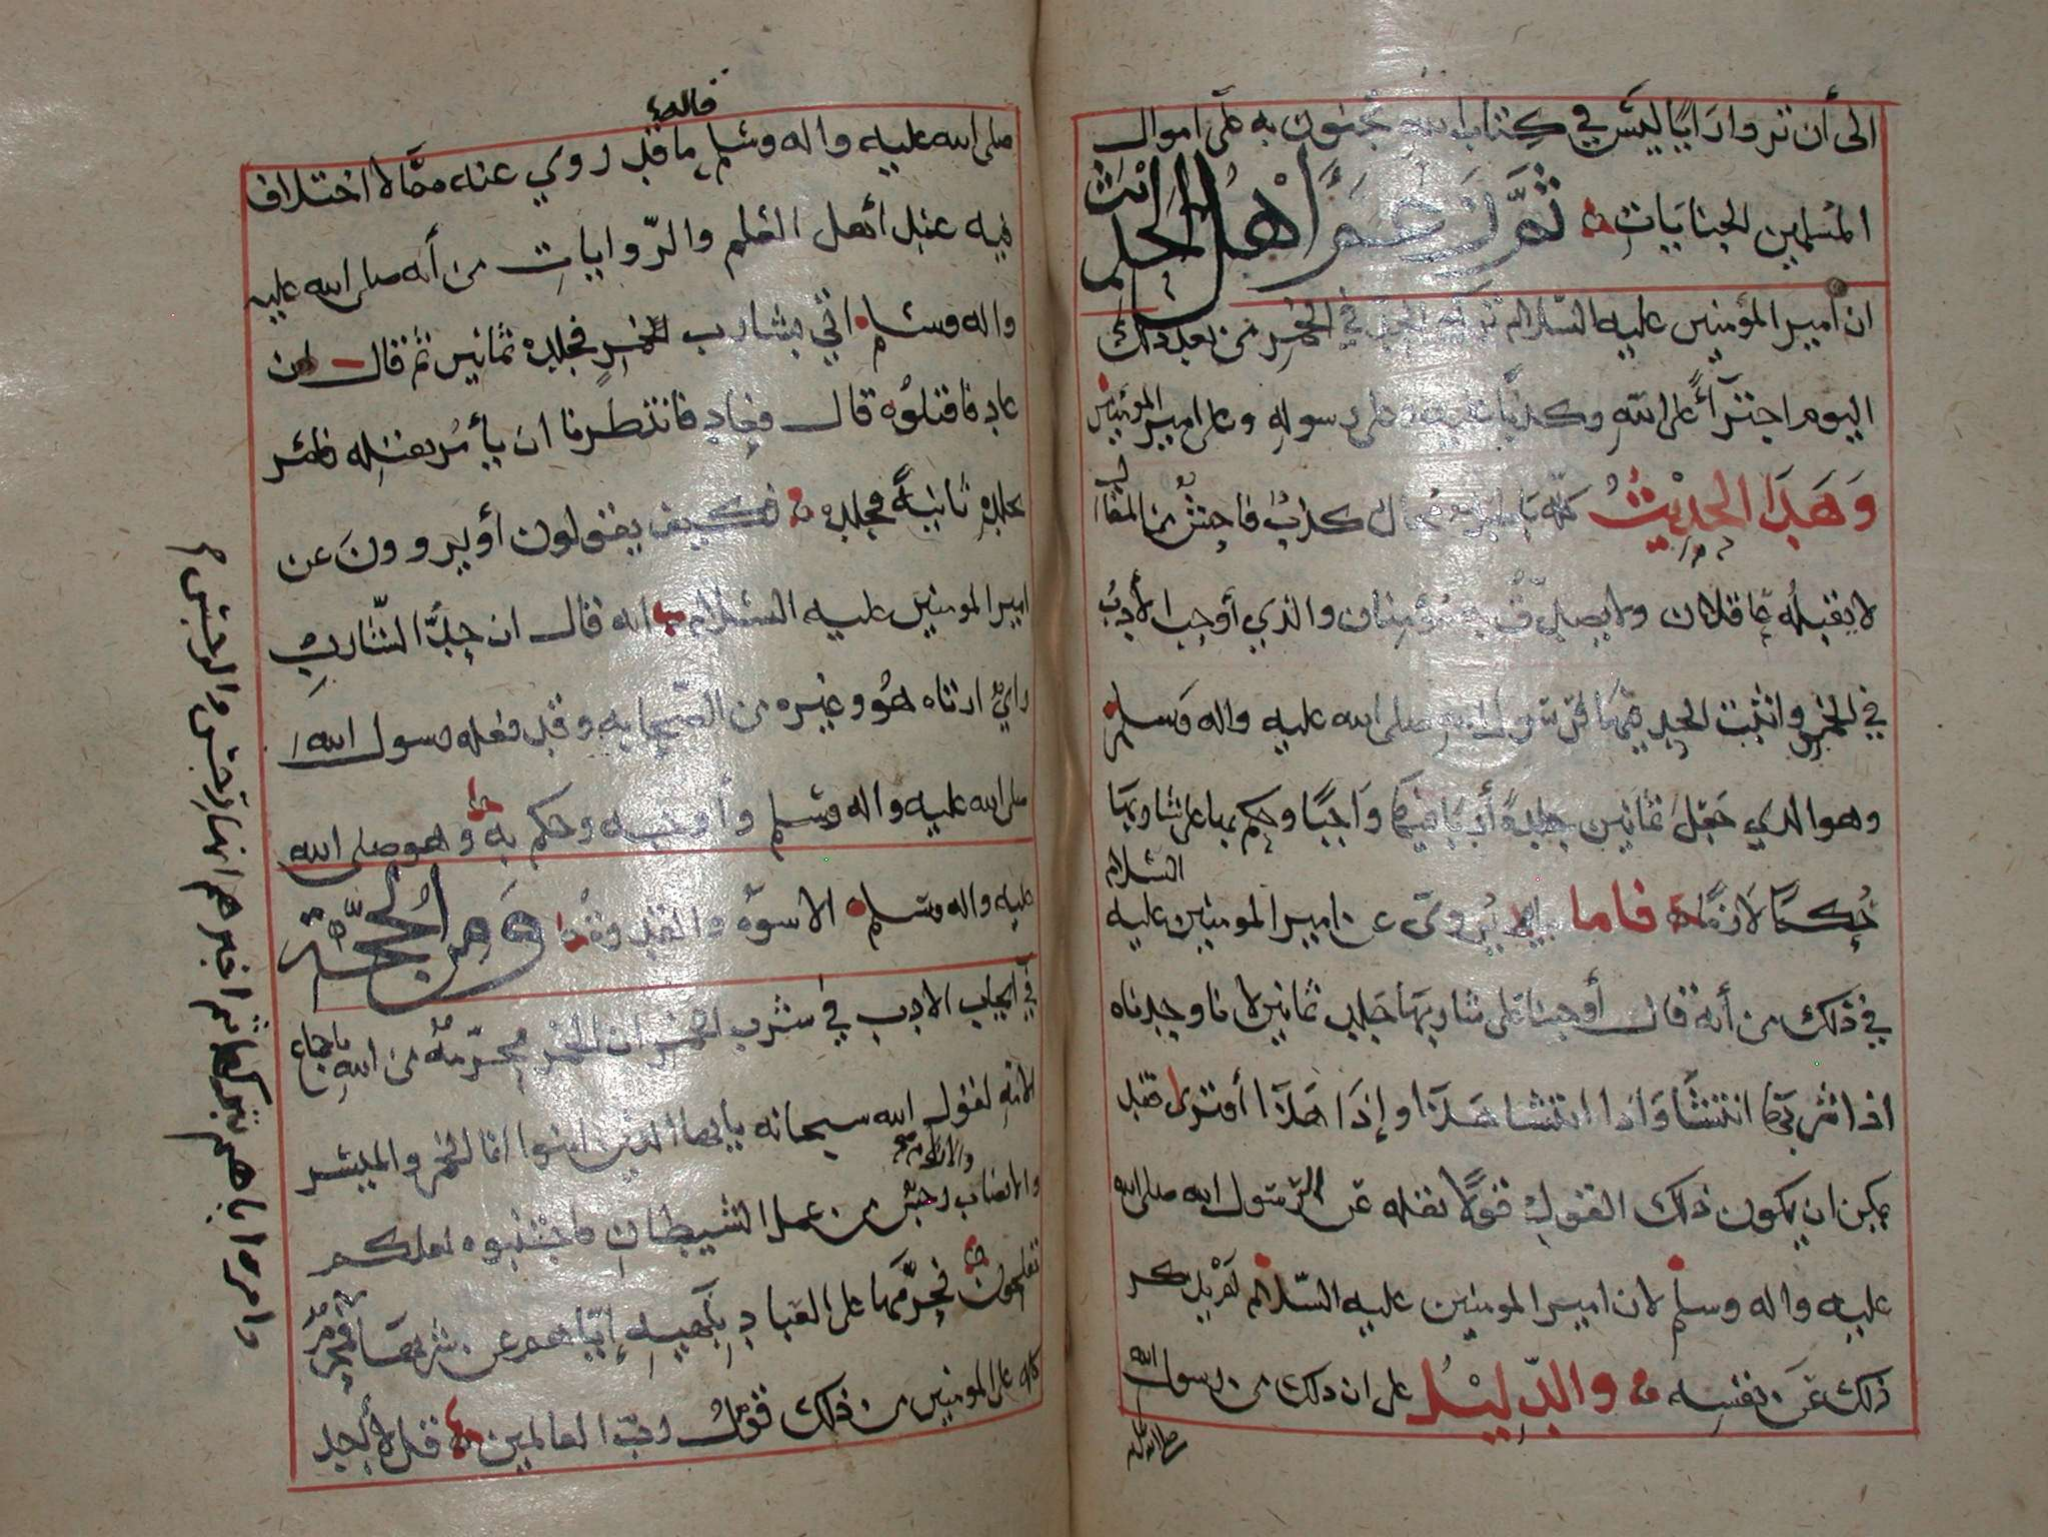 الى أن تروا دايًا ليس في كتاب الله تجبون به على اموال
المسلمين الجنايات ثم زعم أهل الحديث
ان أمير المؤمنين عليه السلام ترك الحد في الخمر من بعد ذلك
اليوم اجترآً على الله وكذبًا عليه وعلى رسوله وعلى امير المؤمنين
وهذا الحديث كله باطل محال كذب فاحش من المقال
لا يقبله عاقلان ولا يصدق به مؤمنان والذي أوجب الأدب
في الخمر واثبت الحد فيها فرسول الله صلى الله عليه واله وسلم
وهو الذي جعل ثمانين جلدة أدبا فيها واجبًا وحكم بها على شاربها
حكمًا لازمًا فاما ما يروى عن امير المومنين عليه السلام
في ذلك من أنه قال أوجبنا على شاربها جلد ثمانين لانا وجدناه
اذا شربها انتشا واذا انتشا هذا وإذا هذا أفترى فقد
يمكن ان يكون ذلك القول قولًا نقله عن الرسول الله صلى الله
عليه واله وسلم لان امير المومنين عليه السلام لم يذكر
ذلك عن نفسه والدليل على ان ذلك من رسول الله
صلى الله عليه
صلى الله عليه واله وسلم ما قد روي عنه مما لا اختلاف
قاله
فيه عند أهل العلم والروايات من أنه صلى الله عليه
واله وسلم اتي بشارب الخمر فجلده ثمانين ثم قال إن
عاد فاقتلوه قال فعاد فانتظرنا ان يأمر بقتله فأمر
بجلده ثانية فجلد فكيف يقولون أو يروون عن
امير المومنين عليه السلام انه قال ان جلد الشارب
راي ارتاه هو وغيره من الصحابه وقد فعله رسول الله
صلى الله عليه واله وسلم وأوجبه وحكم به وهو صلى الله
عليه واله وسلم الاسوة والقدوة ومن الحجة
في ايجاب الادب في شرب الخمر ان الخمر محرمة من الله باجماع
الامه لقول الله سبحانه يايها الذين امنوا انما الخمر والميسر
والانصاب والازلام رجس من عمل الشيطان فاجتنبوه لعلكم
تفلحون فحرمها على العباد بنهيه إياهم عن شربها
كله على المومنين من ذلك قول رب العالمين قل لا أجد
وامروا باجتنابهم ثم اخبرهم انها رجس والرجس